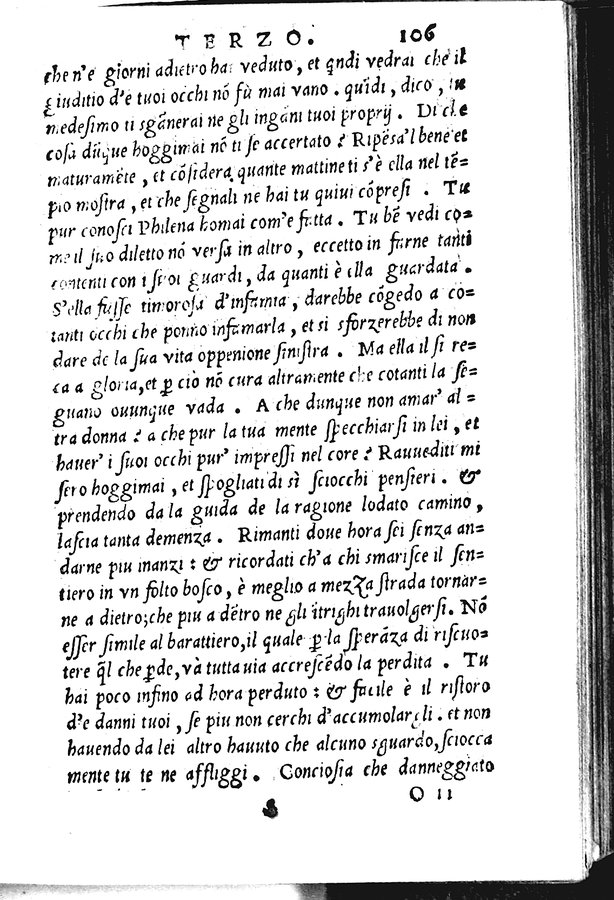 TERZO. 106
che n'e giorni adietro hai veduto, et q̃ndi vedrai che il
giuditio d'e tuoi occhi nõ fù mai vano. quĩdi, dico, tu
medesimo ti sgãnerai ne gli ingãni tuoi proprij. Di che
cosa dũque hoggimai nõ ti se accertato? Ripẽsa'l bene et
maturamẽte, et cõsidera quante mattine ti s'è ella nel tẽ=
pio mostra, et che segnali ne hai tu quiui cõpresi. Tu
pur conosci Philena homai com'e fatta. Tu bẽ vedi co=
me il suo diletto nó versa in altro, eccetto in farne tanti
contenti con i suoi guardi, da quanti è ella guardata.
S'ella fusse timorosa d'infamia, darebbe cõgedo a co=
tanti occhi che ponno infamarla, et si sforzerebbe di non
dare de la sua vita oppenione sinistra. Ma ella il si re=
ca a gloria, et ꝑ ciò nõ cura altramente che cotanti la se=
guano ouunque vada. A che dunque non amar' al=
tra donna? a che pur la tua mente specchiarsi in lei, et
hauer' i suoi occhi pur' impressi nel core? Rauuediti mi
sero hoggimai, et spogliati di sì sciocchi pensieri. &
prendendo da la guida de la ragione lodato camino,
lascia tanta demenza. Rimanti doue hora sei senza an=
darne piu inanzi: & ricordati ch'a chi smarisce il sen=
tiero in vn folto bosco, è meglio a mezza strada tornar=
ne a dietro; che piu a dẽtro ne gli ĩtrighi trauolgersi. Nõ
esser simile al barattiero, il quale ꝑ la sperãza di riscuo=
tere q̃l che ꝑde, và tuttauia accrescẽdo la perdita. Tu
hai poco infino ad hora perduto: & facile è il ristoro
d'e danni tuoi, se piu non cerchi d'accumolargli. et non
hauendo da lei altro hauuto che alcuno sguardo, sciocca
mente tu te ne affliggi. Conciosia che danneggiato
O ii